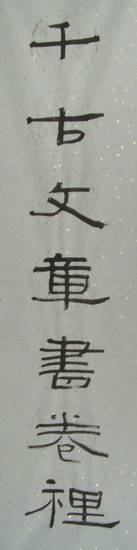 千古文章書卷裡